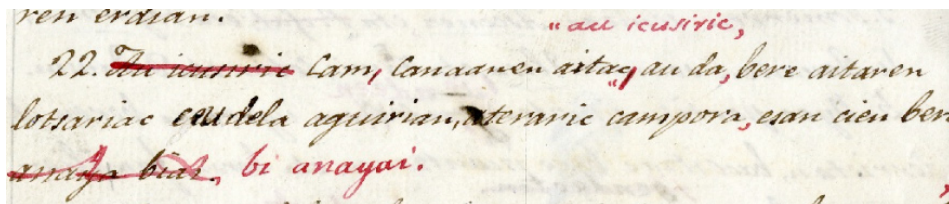 ren erdian.
"au icusiric,
22. Au icusiric Cam, Canaanen aitac, au da, bere aitaren
lotsariac ceudela aguirian, ateraric campora, esan cien ber
anaya biai. bi anayai.